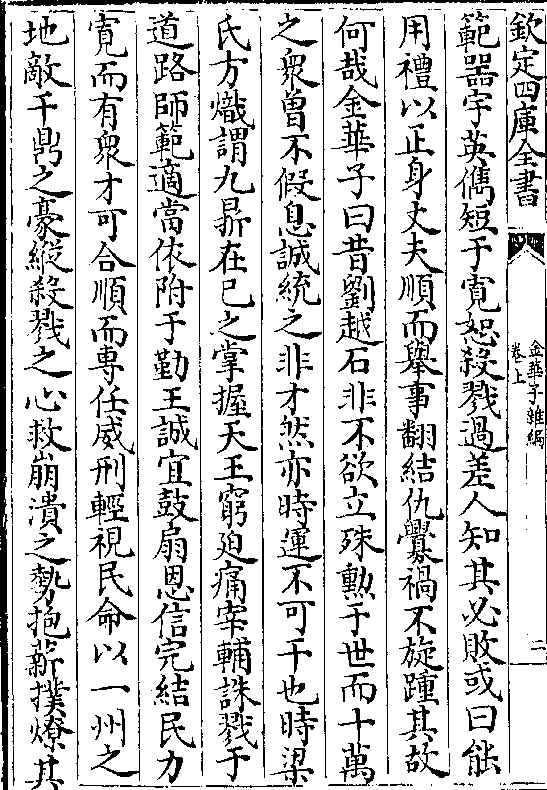 欽定四庫全書
金華子雜編
卷上
二
範器宇英儁短于寛恕殺戮過差人知其必敗或曰能
用禮以正身丈夫順而舉事翻結仇釁禍不旋踵其故
何哉金華子曰昔劉越石非不欲立殊勲于世而十萬
之衆曽不假息誠統之非才然亦時運不可干也時梁
氏方熾謂九鼎在己之掌握天王窮迫痛宰輔誅戮于
道路師範適當依附于勤王誠宜鼓扇恩信完結民力
寛而有衆才可合順而專任威刑輕視民命以一州之
地敵千鼎之豪縱殺戮之心救崩潰之勢抱薪撲燎其